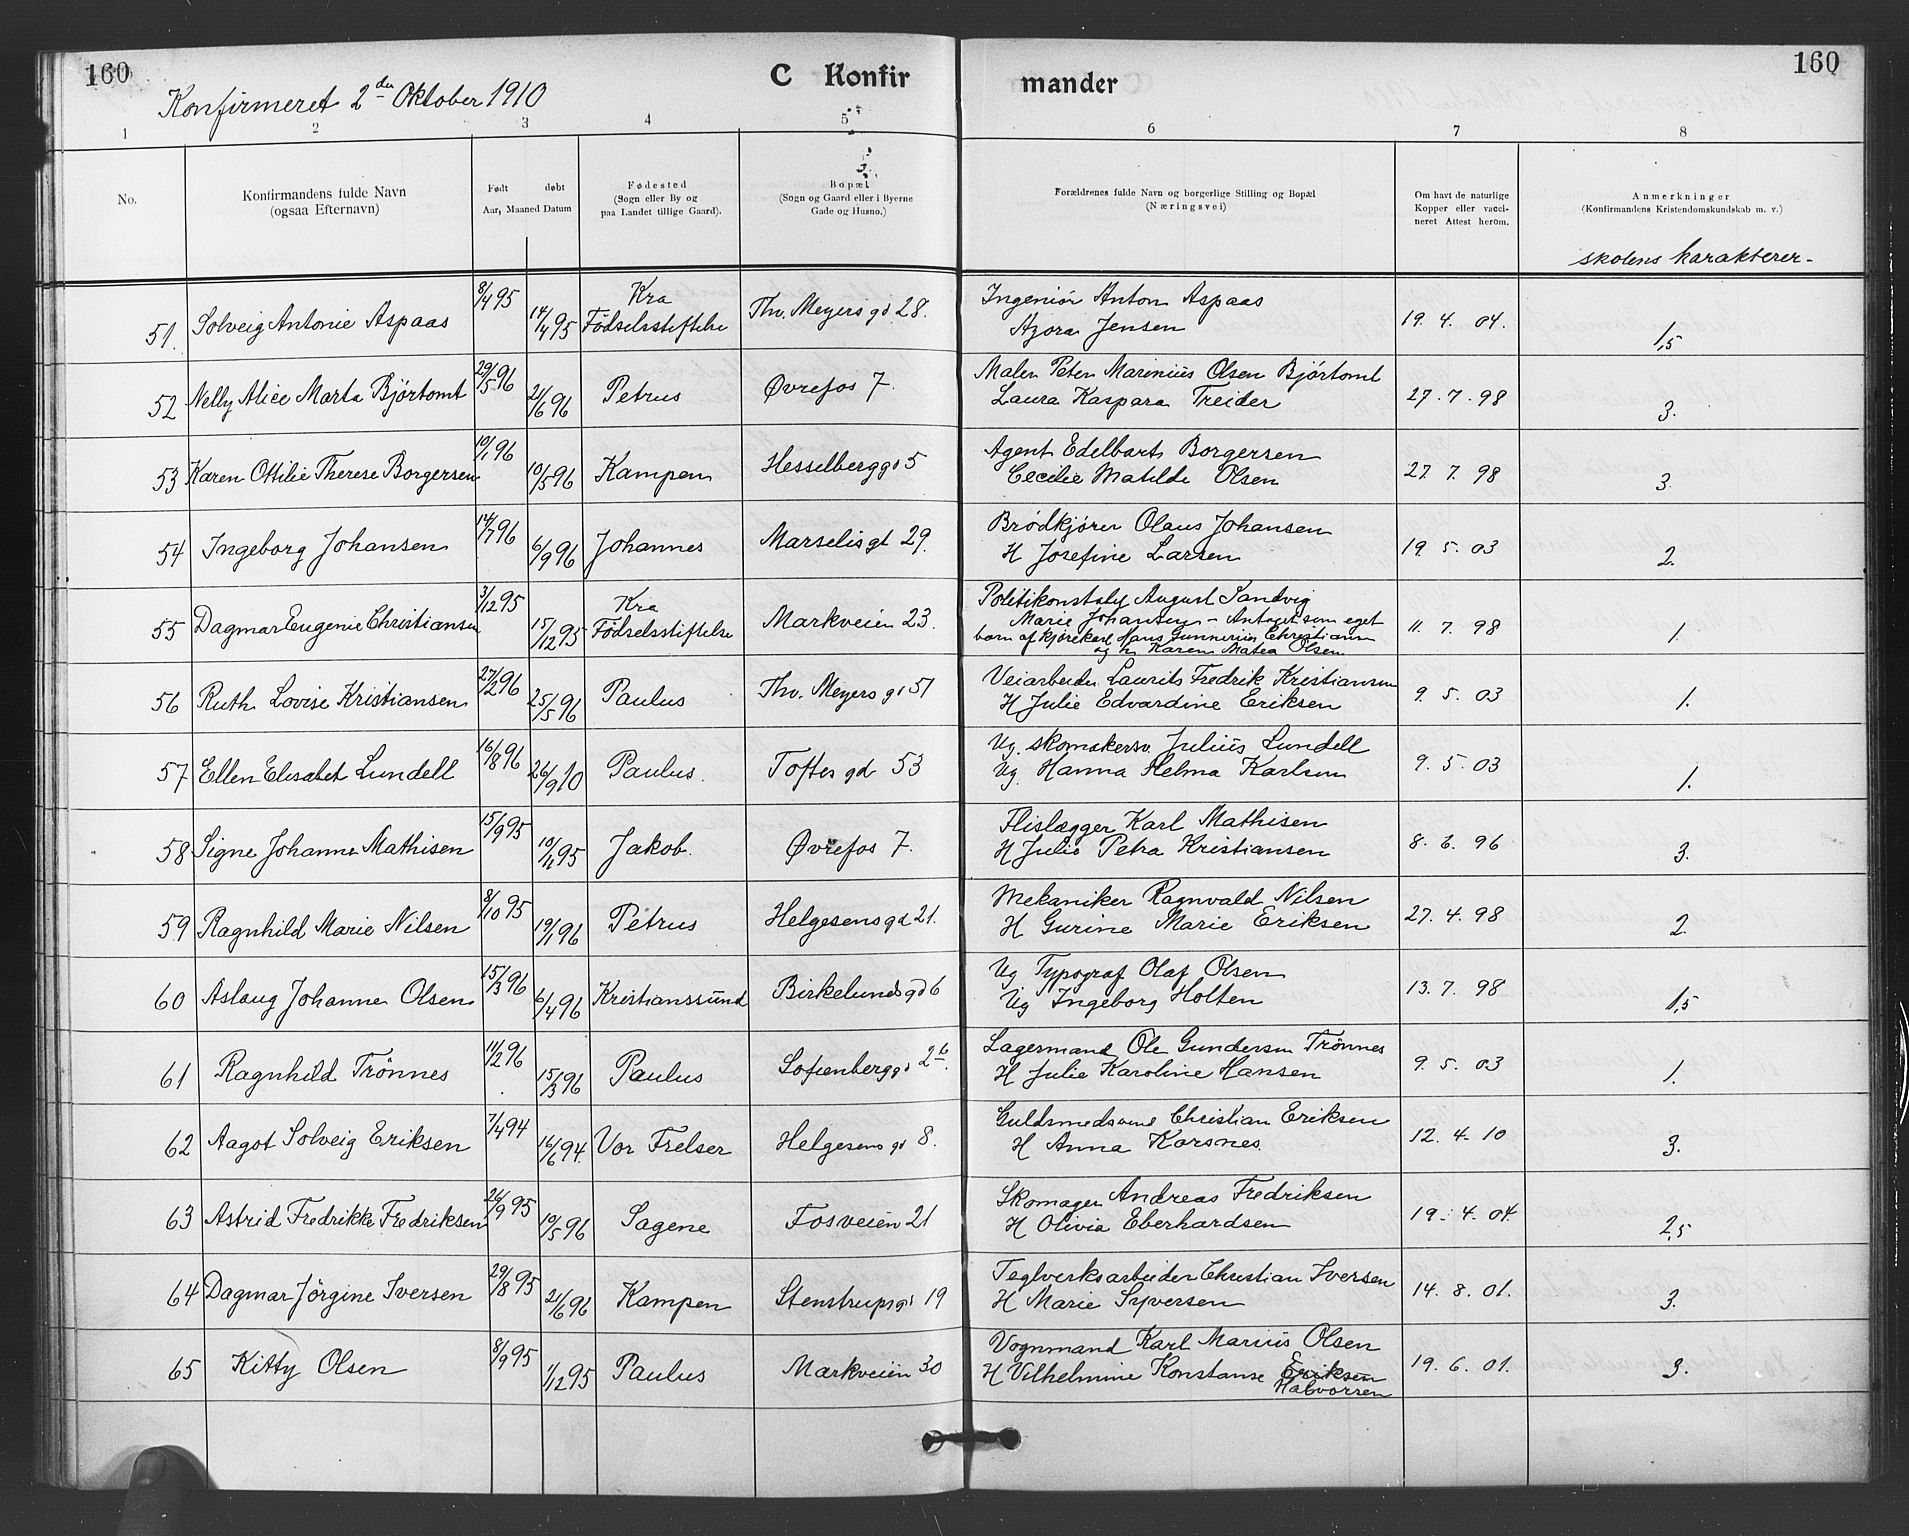 160
C Konfirmander
160
Konfirmeret 2den Oktober 1910
1 2 3 4 5 6 7 8
No.
Konfirmandens fulde Navn
(ogsaa Efternavn)
Født døbt
Aar, Maaned Datum
Fødested
(Sogn eller By og
paa Landet tillige Gaard).
Bopæl
(Sogn og Gaard eller i Byerne
Gade og Husno.)
Forældrenes fulde Navn og borgerlige Stilling og Bopæl
(Næringsvei)
Om havt de naturlige
Kopper eller vacci-
neret Attest herom.
Anmerkninger
(Konfirmandens Kristendomskundskab m. v.)
skolens karakterer-
51. Solveig Antonie Aspaas 8/4 95 14/4 95 Kra Födselsstiftelse Thv. Meyers gd 28. Ingeniör Anton Aspaas
Azora Jensen 19. 4. 04. 1,5
52 Nelly Alice Marta Bjørtomt 29/5 96 21/6 96 Petrus Øvrefos 7. Maler Peter Marinius Olsen Bjørtomt
Laura Kaspara Treider 27. 7. 98 3.
53 Karen Ottilie Therese Borgersen 10/1 96 10/5 96 Kampen Hesselberggd 5 Agent Edelbart Borgersen
Cecilie Matilde Olsen 27. 7. 98 3.
54 Ingeborg Johansen 14/7 96 6/9 96 Johannes Marselisgt 29. Brødkjører Olaus Johansen
H Josefine Larsen 19. 5. 03 2.
55 Dagmar Eugenie Christiansen 3/12 95 15/12 95 Kra Födselsstiftelse Markveien 23. Politikonstabl August Sandvig
Marie Johansen - Antaget som eget
barn af kjørekarl Hans Gunnerius Christiansen
og h. Karen Matea Olsen 11. 7. 98 1.
56 Ruth Lovise Kristiansen 27/2 96 25/5 96 Paulus Thv. Meyers gd 51 Veiarbeider Laurits Fredrik Kristiansen
H Julie Edvardine Eriksen 9. 5. 03 1.
57 Ellen Elisabet Lundell 16/8 96 26/9 10 Paulus. Toftes gd 53 Ug. skomakersv. Julius Lundell
Ug. Hanna Helma Karlsen 9. 5. 03 1.
58 Signe Johanne Mathisen 15/9 95 10/11 95 Jakob. Øvrefos 7. Flislægger Karl Mathisen
H Julie Petra Kristiansen 8. 6. 96 3.
59 Ragnhild Marie Nilsen 8/10 95 19/1 96 Petrus Helgesens gd 21. Mekaniker Ragnvald Nilsen
H Gurine Marie Eriksen 27. 4. 98 2.
60 Aslaug Johanne Olsen 15/3 96 6/4 96 Kristianssund Birkelunds gd 6 Ug Typograf Olaf Olsen
Ug Ingeborg Holten 13. 7. 98 1,5
61 Ragnhild Trönnes 11/2 96 15/3 96 Paulus Sofienberggd 2b. Lagermand Ole Gundersen Trönnes
H Julie Karoline Hansen 9. 5. 03 1.
62 Aagot Solveig Eriksen 7/4 94 16/6 94. Vor Frelser Helgesens gd 8. Guldsmedsvend Christian Eriksen
H Anna Korsnes. 12. 4. 10 3.
63 Astrid Fredrikke Fredriksen 26/9 95 10/5 96 Sagene Fosveien 21 Skomager Andreas Fredriksen
H Olivia Eberhardsen 19. 4. 04. 2,5
64 Dagmar Jörgine Iversen 29/8 95 21/6 96 Kampen Stenstrupsgd 19 Teglverksarbeider Christian Iversen
H Marie Syversen 14. 8. 01. 3.
65 Kitty Olsen 8/9 95 1/12 95 Paulus Markveien 30 Vognmand Karl Marius Olsen
H Vilhelmine Konstanse Eriksen
Halvorsen 19. 6. 01. 3.